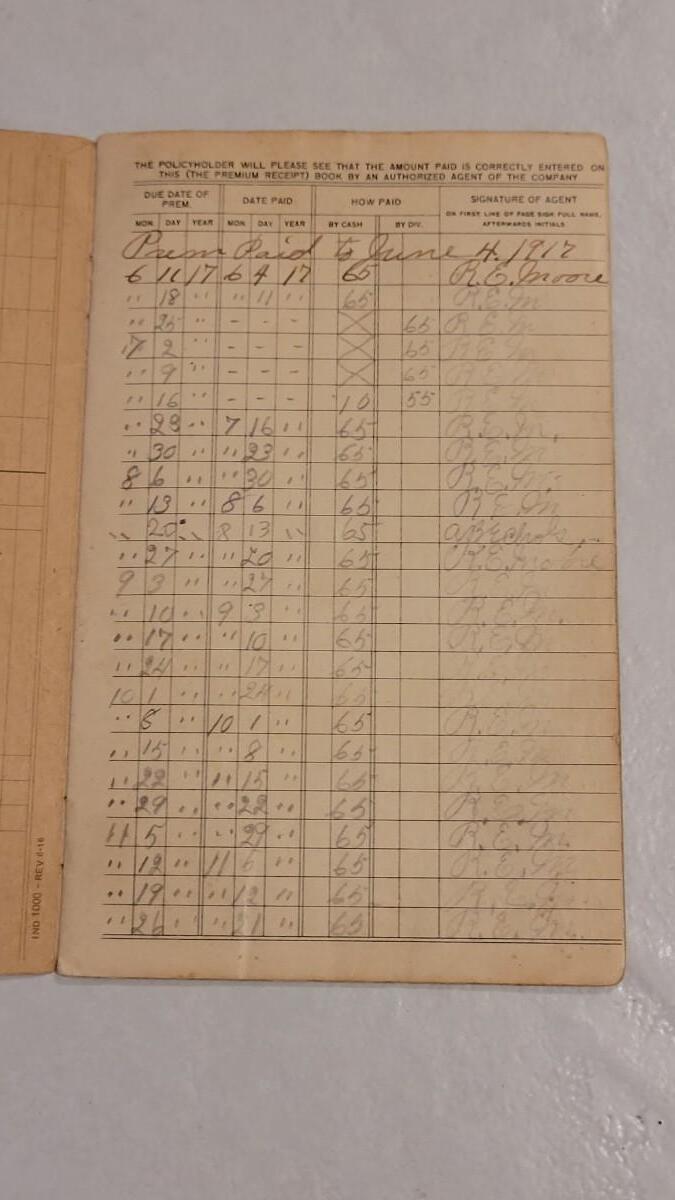 THE POLICYHOLDER WILL PLEASE SEE THAT THE AMOUNT PAID IS CORRECTLY ENTERED ON
THIS (THE PREMIUM RECEIPT) BOOK BY AN AUTHORIZED AGENT OF THE COMPANY
DUE DATE OF PREM. DATE PAID HOW PAID SIGNATURE OF AGENT
ON FIRST LINE OF PAGE SIGN FULL NAME, AFTERWARDS INITIALS
MON. DAY YEAR MON. DAY YEAR BY CASH BY DIV.
Prem Paid to June 4. 1917
6 11 17 6 4 17 65 R.E. Moore
" 18 " " 11 " 65 R.E.M
" 25 " - - - X 65 R.E.M
7 2 " - - - X 65 R.E.M
" 9 " - - - X 65 R.E.M
" 16 " - - - 10 55 R.E.M
" 23 " 7 16 " 65 R.E.M.
" 30 " " 23 " 65 R.E.M
8 6 " " 30 " 65 R.E.M.
" 13 " 8 6 " 65 R.E.M
" 20 " 8 13 " 65
" 27 " " 20 " 65 R.E. Moore
9 3 " " 27 " 65 R.E.M
" 10 " 9 3 " 65 R.E.M.
" 17 " " 10 " 65 R.E.M
" 24 " " 17 " 65 R.E.M
10 1 " " 24 " 65
" 8 " 10 1 " 65 R.E.M
" 15 " " 8 " 65 R.E.M
" 22 " " 15 " 65 R.E.M
" 29 " " 22 " 65 R.E.M
11 5 " " 29 " 65 R.E.M.
" 12 " 11 5 " 65 R.E.M
" 19 " " 12 " 65 R.E.M.
" 26 " " 21 " 65 R.E.M.
IND 1000 - REV 6-16